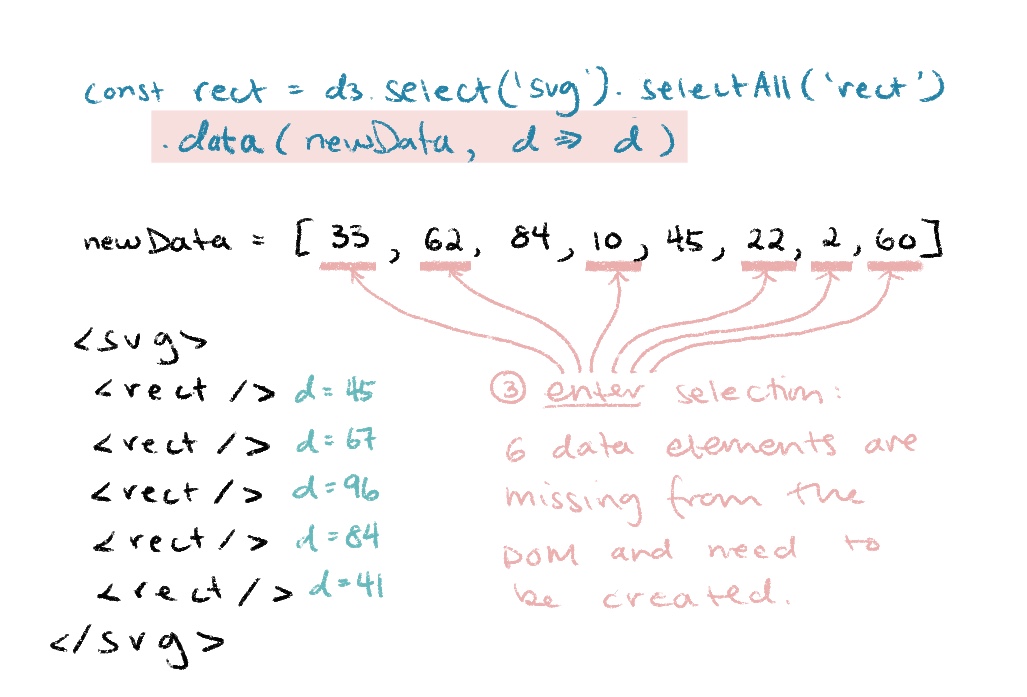 const rect = d3.select('svg').selectAll('rect')
.data(newData, d => d)
newData = [33, 62, 84, 10, 45, 22, 2, 60]
<svg>
<rect /> d=45
<rect /> d=67
<rect /> d=96
<rect /> d=84
<rect /> d=41
</svg>
③ enter selection:
6 data elements are
missing from the
DOM and need to
be created.